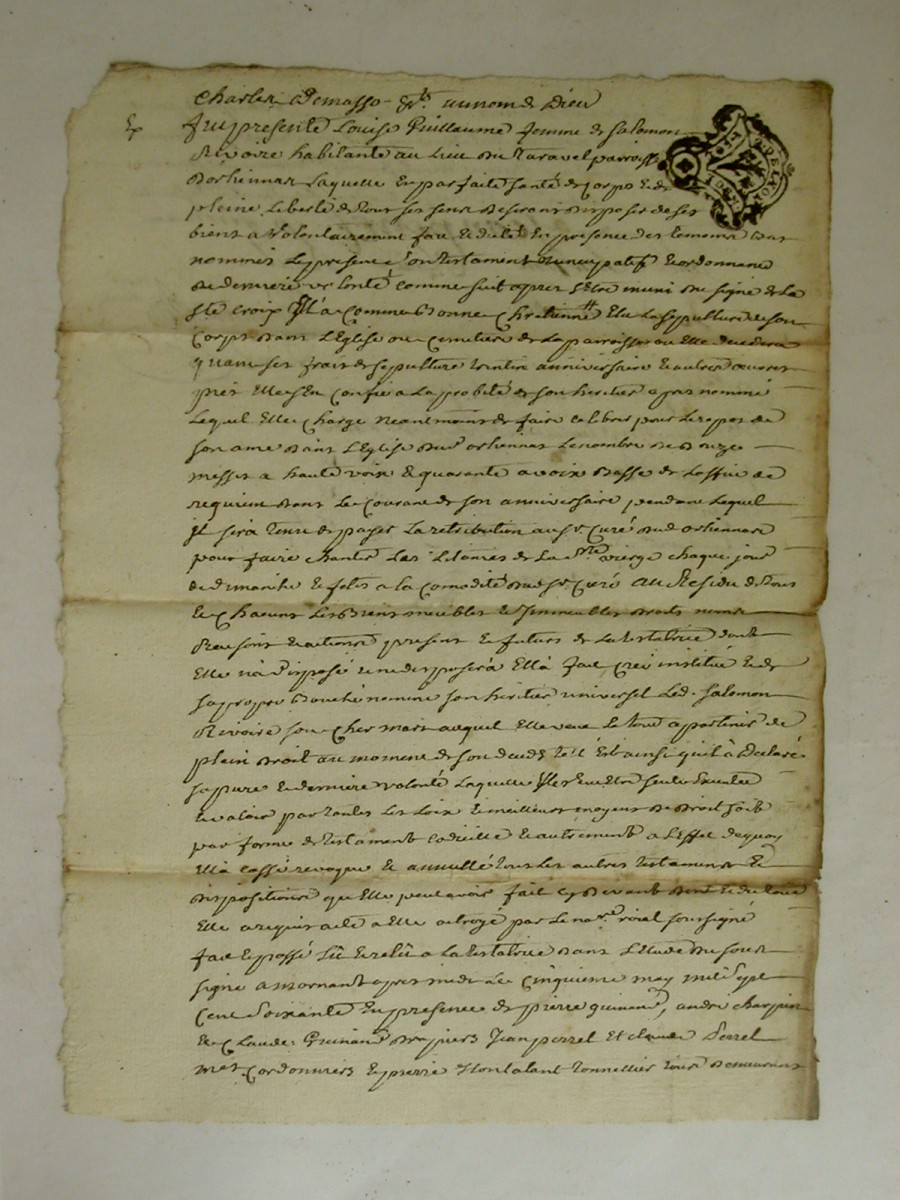 Au nom de Dieu
Fut presente Louise Guillaume femme de Salomon
Rivoire habitante au lieu du Ravel parroisse
D'orliennas laquelle en parfaite santé de corps et de
pleine liberté de tous ses sens desirant disposer de ses
biens a volontairement fait et dicté en presence des temoins bas
nommés le present son testament nuncupatif et ordonnance
de derniere volonté comme suit apres s'etre muni du signe de la
ste croix Il a comme bonne chretienne elu la sepulture de son
corps dans l'Eglise ou cemetiere de la parroisse ou elle decedera
quant ses frais de sepulture anniversaire et autres œuvres
pies elle s'en confie a la probité de son heritier apres nommé
lequel elle charge neantmoins de faire celebrer pour le repos de
son ame dans l'Eglise dud orliennas le nombre de douze
messes a haute voix et quarante a voix basse de l'office de
requiem dans le courant de son anniversaire pendant lequel
Il sera tenu de payer la retribution au sr curé dud orliennas
pour faire chanter les litanies de la ste vierge chaque jour
de dimanche et fetes a la comodité dud sr curé au residu de tous
et chacuns les biens meubles et immeubles droits noms
raisons et actions presents et futurs de la testatrice dont
elle n'a disposé et ne disposera elle a fait creé institué et de
sa propre bouche nommé son heritier universel led. Salomon
Rivoire son cher mari auquel elle veut le tout appartenir de
plein droit au moment de son deces tel est ainsi qu'il a declaré
sa pure et derniere volonté laquelle
et valoir par toutes les loix et meilleurs moyens de droit soit
par forme de testament codicille et autrement a l'effet de quoy
elle a cassé revoque et annullé tous les autres testaments et
dispositions que elle peut avoir fait cy devant dont et du tout
elle a requis acte a elle octroyé par le nore roial soussigné
fait et passé lû et relû a la testatrice dans l'etude du sous
signé a Mornant apres midi le cinquieme may mil sept
cent soixante en presence de pierre guinand, andré charpin
et Claude Guinand Jean perrel et claude Perrel
mes cordonniers et pierre tonnellier tous demeurant